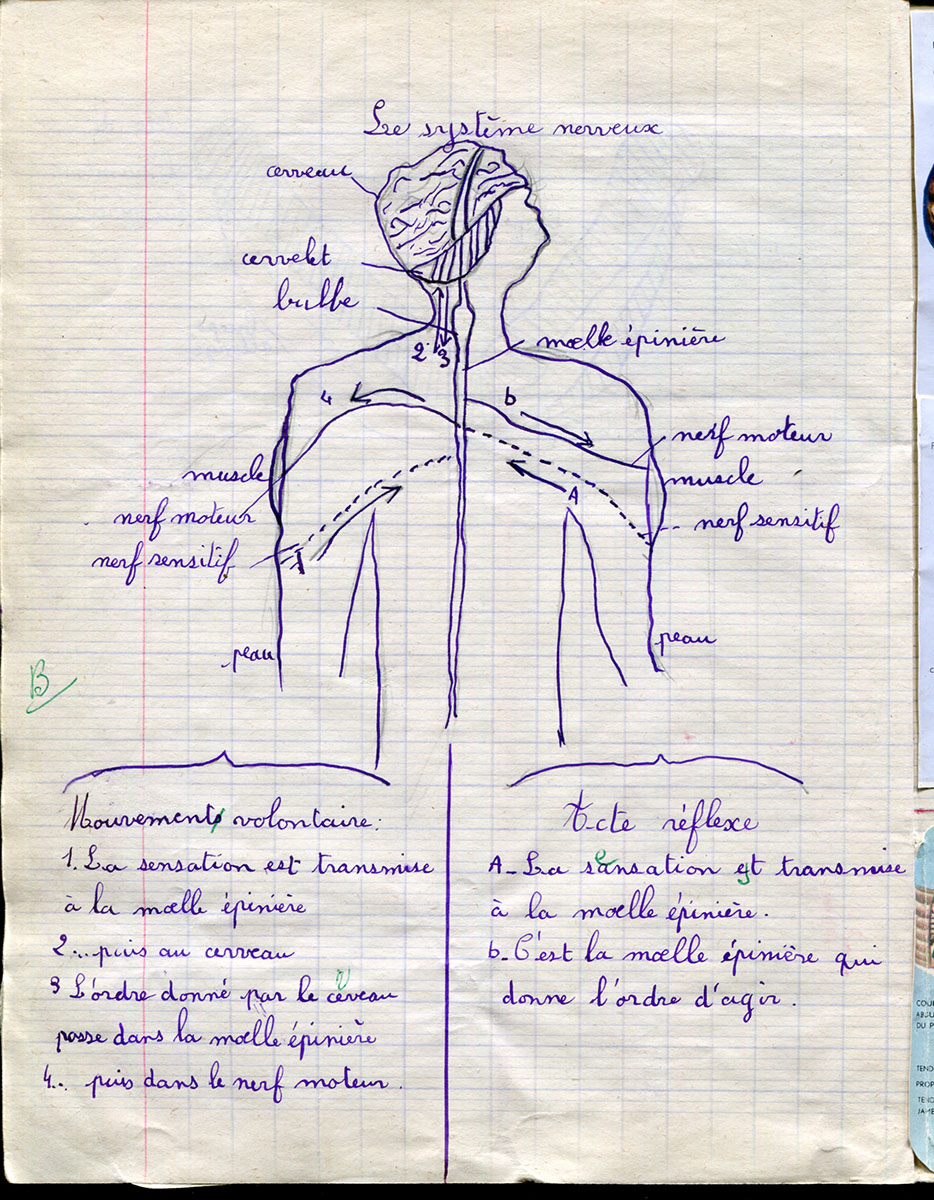 Le système nerveux
cerveau
cervelet
bulbe
2 3
moelle épinière
4
b
nerf moteur
muscle
muscle
A
nerf moteur
nerf sensitif
nerf sensitif
1
peau
peau
B
Mouvement volontaire:
1. La sensation est transmise
à la moelle épinière
2... puis au cerveau
3 L'ordre donné par le cerveau
passe dans la moelle épinière
4.. puis dans le nerf moteur.
Acte réflexe
A_ La sensation est transmise
à la moelle épinière.
b_ C'est la moelle épinière qui
donne l'ordre d'agir.
COU
ABOU
DU P
TEND
PROP
TEND
JAMB